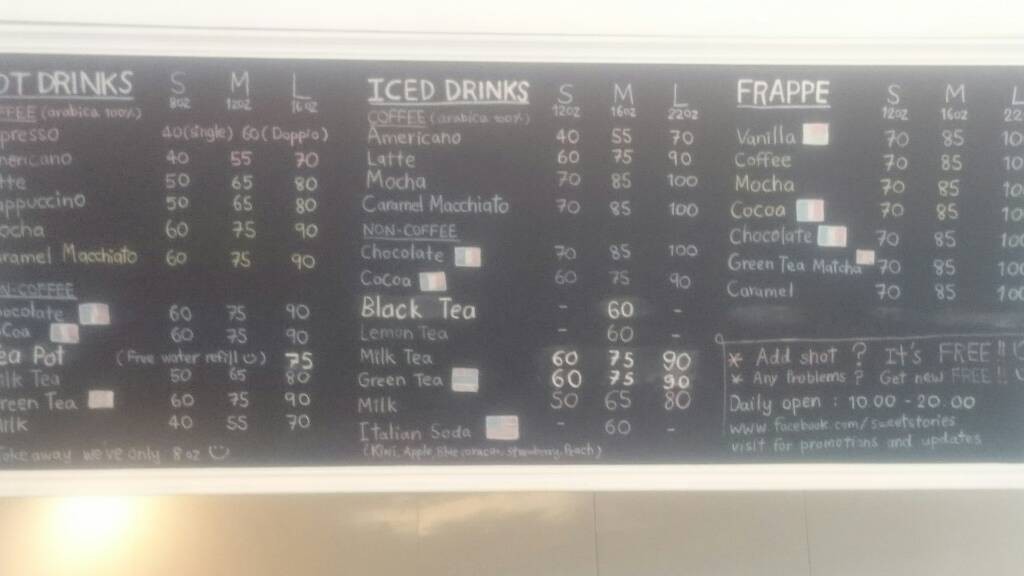 OT DRINKS S M L
8oz 12oz 16oz
FFEE (arabica 100%)
presso 40(single) 60(Doppio)
mericano 40 55 70
tte 50 65 80
appuccino 50 65 80
ocha 60 75 90
aramel Macchiato 60 75 90
N-COFFEE
ocolate 60 75 90
Coa 60 75 90
ea Pot (Free water refill ☺) 75
ilk Tea 50 65 80
reen Tea 60 75 90
ilk 40 55 70
Take away we've only 8 oz ☺
ICED DRINKS S M L
12oz 16oz 22oz
COFFEE (arabica 100%)
Americano 40 55 70
Latte 60 75 90
Mocha 70 85 100
Caramel Macchiato 70 85 100
NON-COFFEE
Chocolate 70 85 100
CoCoa 60 75 90
Black Tea - 60 -
Lemon Tea - 60 -
Milk Tea 60 75 90
Green Tea 60 75 90
Milk 50 65 80
Italian Soda - 60 -
(Kiwi, Apple, Blue curacao, Strawberry, Peach)
FRAPPE S M L
12oz 16oz 22
Vanilla 70 85 10
Coffee 70 85 10
Mocha 70 85 10
Cocoa 70 85 10
Chocolate 70 85 10
Green Tea Matcha 70 85 100
Caramel 70 85 100
* Add shot ? It's FREE!!
* Any Problems ? Get new FREE!!
Daily open : 10.00 - 20.00
www.facebook.com/sweetstories
visit for promotions and updates